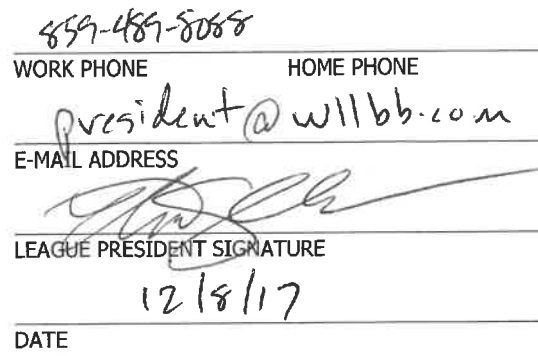 859-489-5088
WORK PHONE HOME PHONE
president@wllbb.com
E-MAIL ADDRESS
LEAGUE PRESIDENT SIGNATURE
12/8/17
DATE